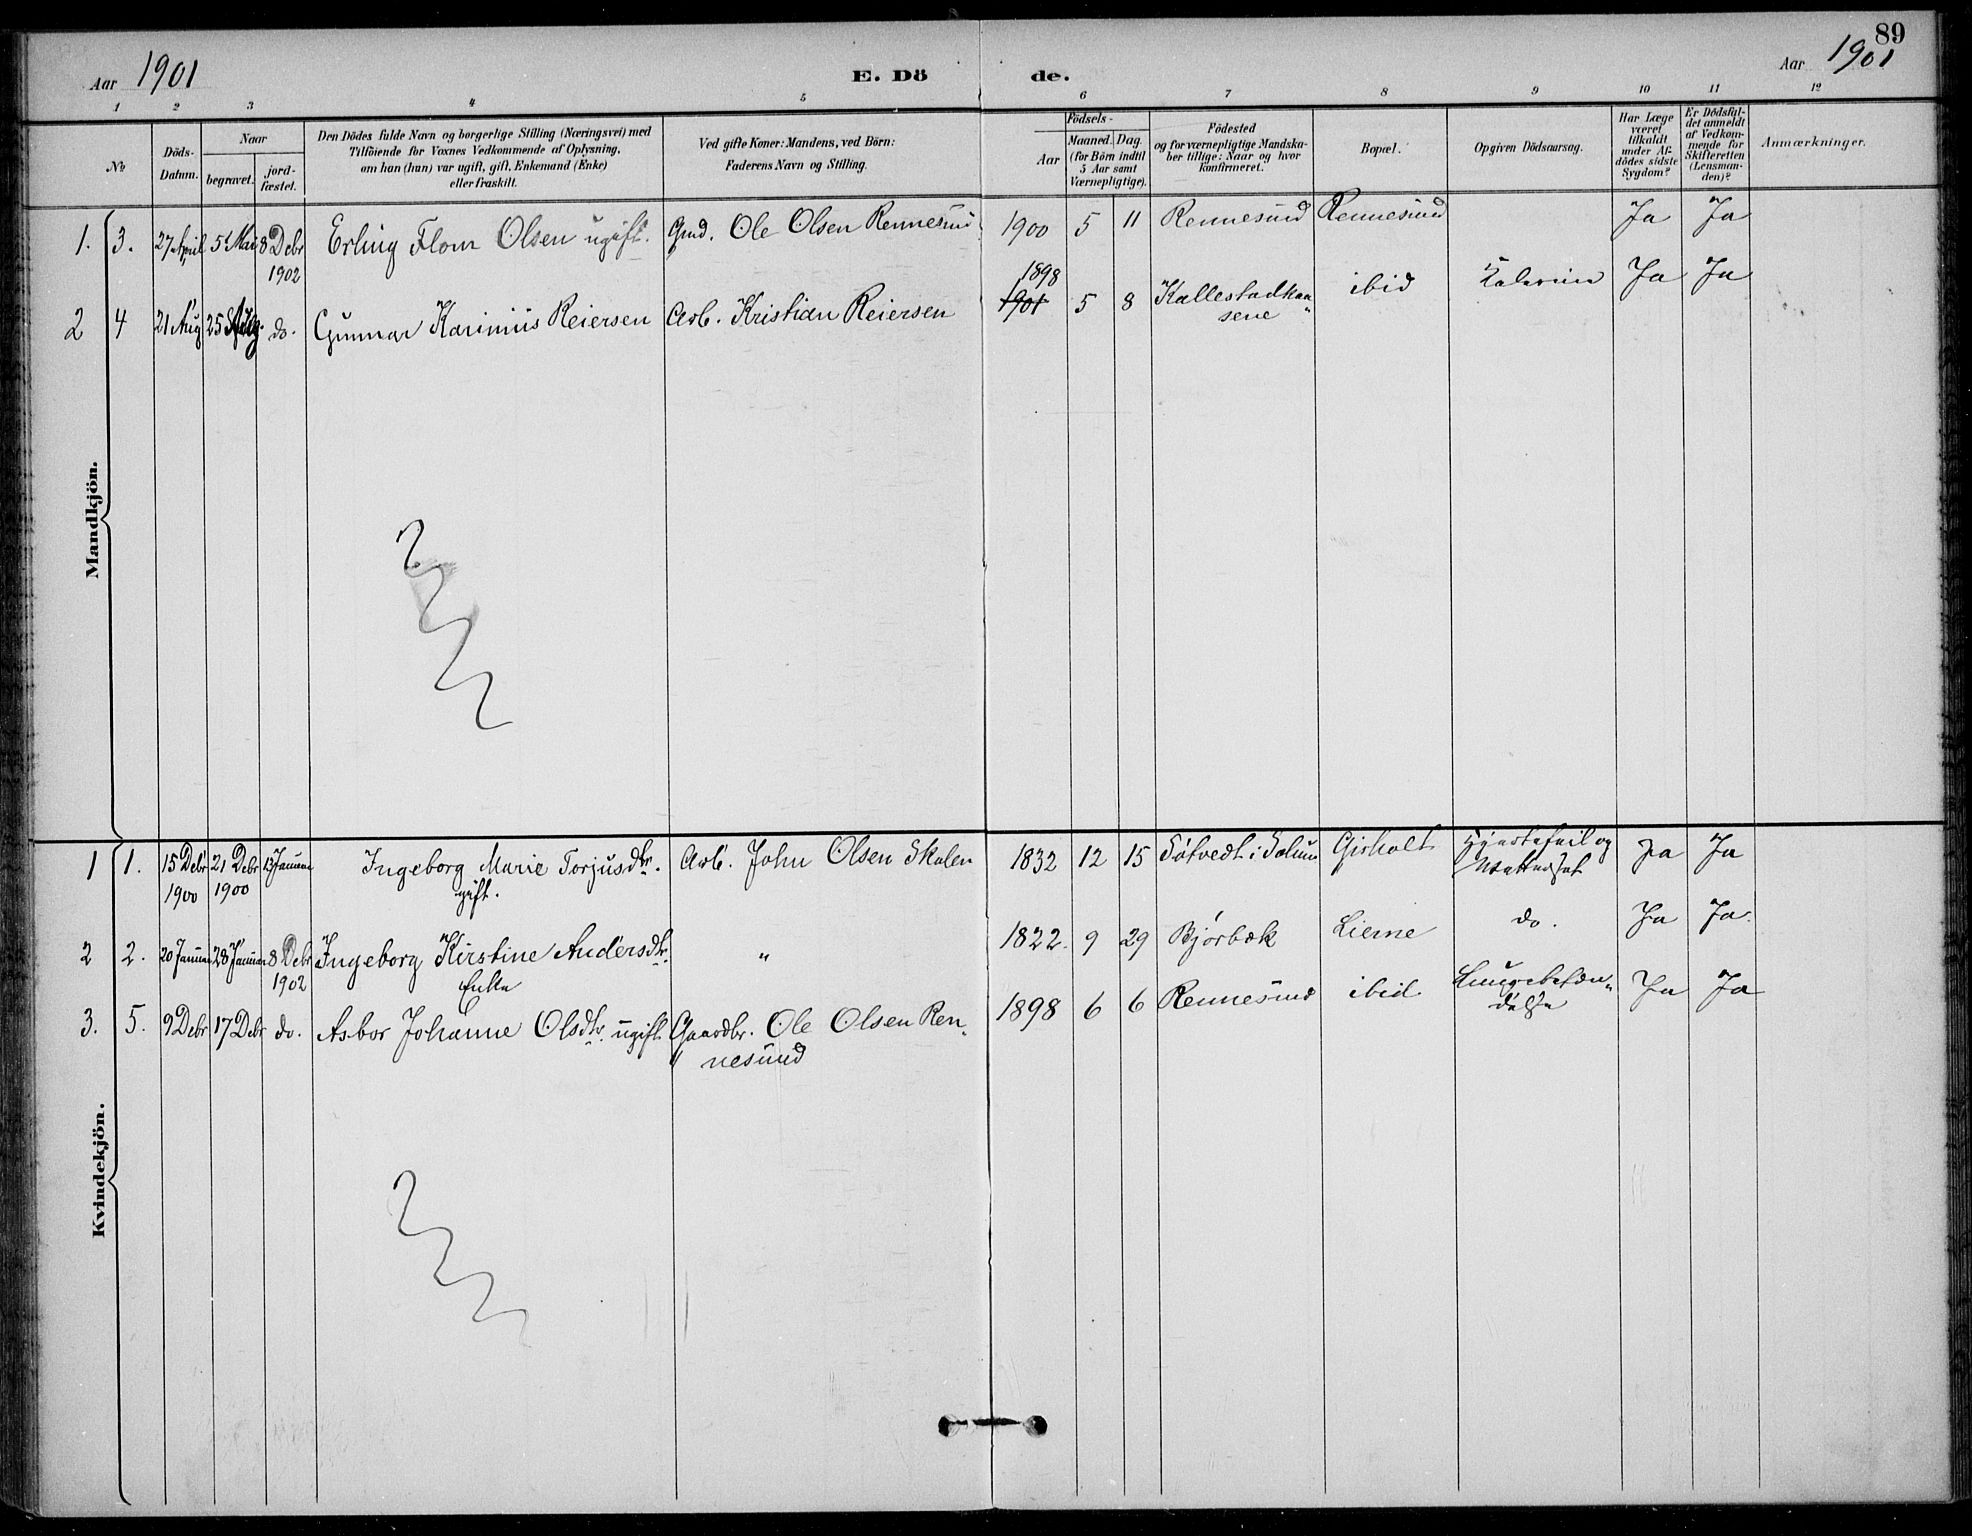 89
Aar 1901
E. Dö
de.
Aar 1901
1 2 3 4 5 6 7 8 9 10 11 12
№
Döds-
Datum.
Naar
begravet.
jord-
fæstet.
Den Dödes fulde Navn og borgerlige Stilling (Næringsvei) med
Tilföiende for Voxnes Vedkommende af Oplysning,
om han (hun) var ugift, gift, Enkemand (Enke)
eller fraskilt.
Ved gifte Koner: Mandens, ved Börn:
Faderens Navn og Stilling.
Födsels-
Aar
Maaned.
Dag.
(for Börn indtil
5 Aar samt
Værnepligtige).
Födested
og for værnepligtige Mandska-
ber tillige: Naar og hvor
konfirmeret.
Bopæl.
Opgiven Dödsaarsag.
Har Læge
været
tilkaldt
under Af-
dödes sidste
Sygdom?
Er Dödsfal-
det anmeldt
af Vedkom-
mende for
Skifteretten
(Lensman-
den)?
Anmærkninger.
Mandkjön.
1. 3. 27 April 5 Mai 8 Debr Erling Flom Olsen ugift. Gmd. Ole Olsen Rennesund 1900 5 11 Rennesund Rennesund Ja Ja
1902
1898
2 4 21 Aug 25 Aug. do. Gunnar Karinius Reiersen Arb. Kristian Reiersen 1901 5 8 Kallestadkaa„ ibid Kolerine Ja Ja
sene
Kvindekjön.
1 1. 15 Debr 21 Debr 13 Januar Ingeborg Marie Torjusdtr. Arb. John Olsen Skalen 1832 12 15 Søtvedt i Solum Gisholt Hjertefeil og Ja Ja
1900 1900 gift. Vattersot
2 2. 20 Januar 28 Januar 8 Debr Ingeborg Kirstine Andersdtr. „ 1822. 9 29 Bjørbæk Lierne do. Ja Ja.
1902 Enke
3. 5. 9 Debr 17 Debr do. Asbor Johanne Olsdtr. ugift Gaardbr. Ole Olsen Ren„ 1898 6 6 Rennesund ibid Lungebetæn„ Ja Ja
„ nesund delse